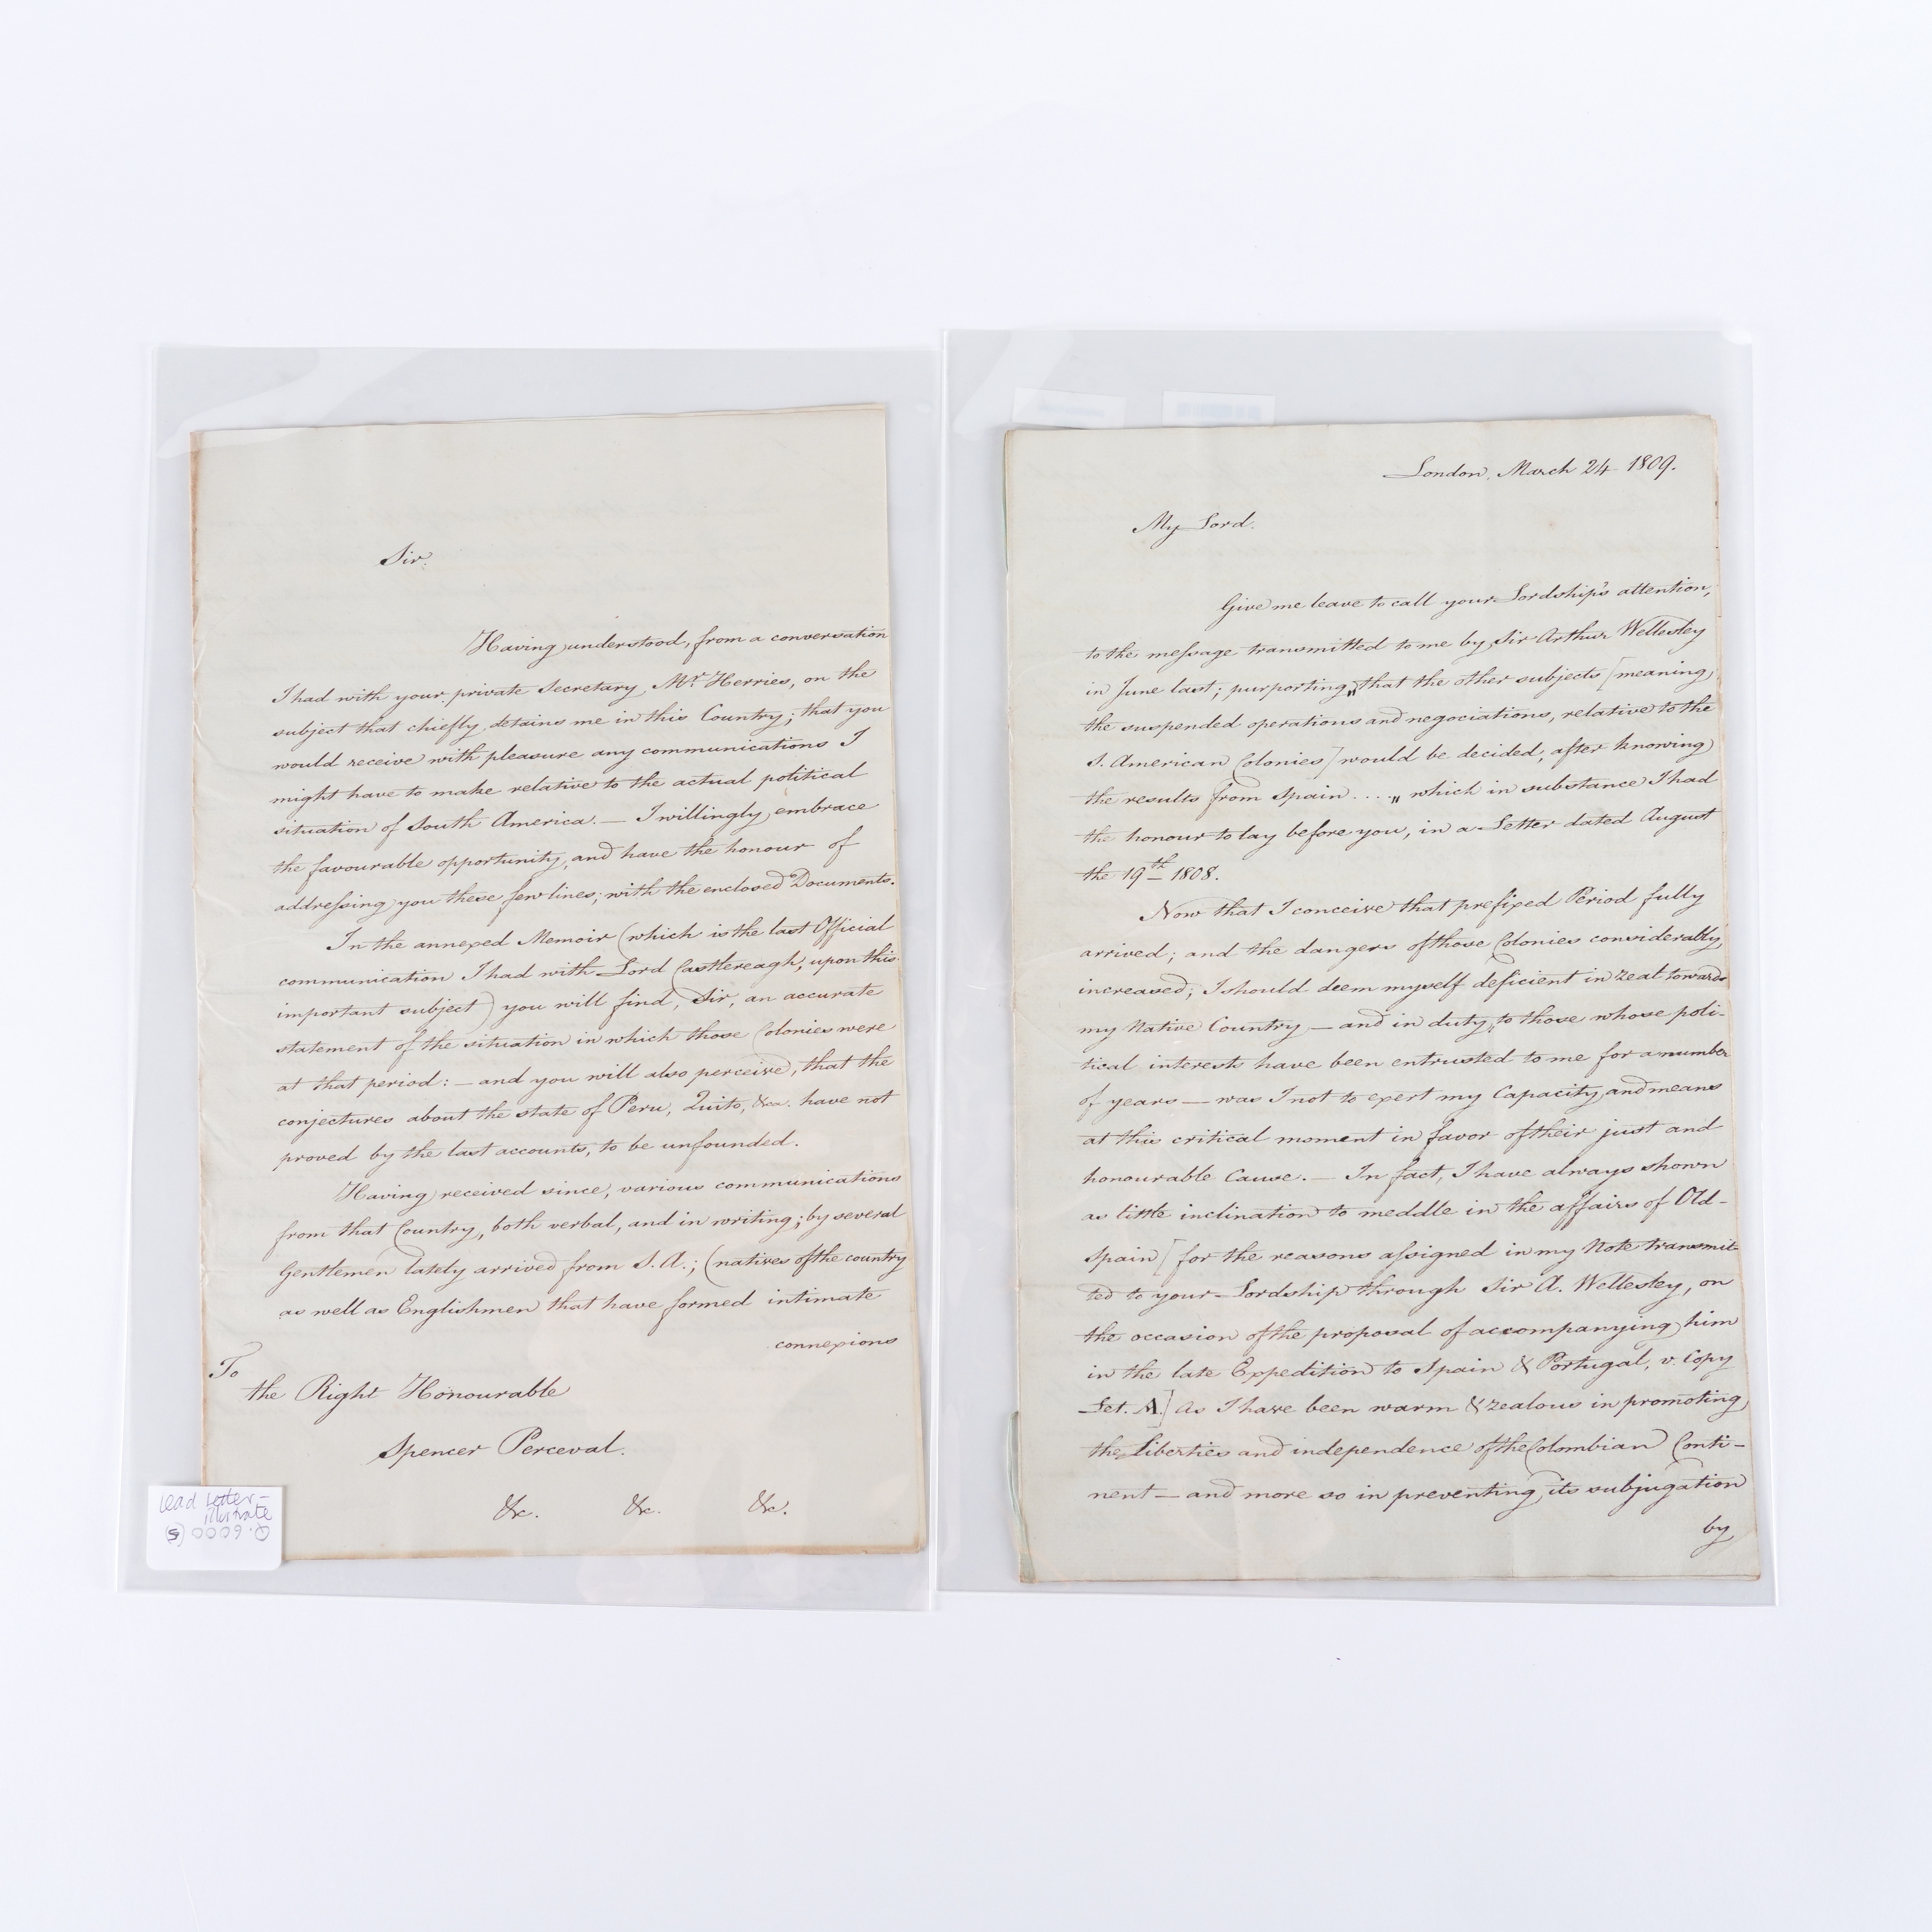 Sir.
Having understood, from a conversation
I had with your private Secretary, Mr. Herries, on the
subject that chiefly detains me in this Country; that you
would receive with pleasure any communications I
might have to make relative to the actual political
situation of South America. — I willingly embrace
the favourable opportunity, and have the honour of
addressing you these few lines; with the enclosed Documents.
In the annexed Memoir (which is the last Official
communication I had with Lord Castlereagh, upon this
important subject) you will find, Sir, an accurate
statement of the situation in which those Colonies were
at that period: — and you will also perceive, that the
conjectures about the state of Peru, Quito, &ca. have not
proved by the last accounts, to be unfounded.
Having received since, various communications
from that Country, both verbal, and in writing; by several
Gentlemen lately arrived from S. A.; (natives of the country
as well as Englishmen that have formed intimate
connexions
To
the Right Honourable
Spencer Perceval.
&c. &c. &c.
Lead Letter –
illustrate
London, March 24 1809.
My Lord.
Give me leave to call your Lordship's attention,
to the message transmitted to me by Sir Arthur Wellesley
in June last; purporting „that the other subjects [meaning
the suspended operations and negociations, relative to the
S. American Colonies] would be decided, after knowing
the results from Spain .... „ which in substance I had
the honour to lay before you, in a Letter dated August
the 19th 1808.
Now that I conceive that prefixed Period fully
arrived; and the dangers of those Colonies considerably
increased; I should deem myself deficient in zeal towards
my Native Country — and in duty, to those whose poli-
tical interests have been entrusted to me for a number
of years — was I not to exert my Capacity and means
at this critical moment in favor of their just and
honourable Cause. — In fact, I have always shown
as little inclination to meddle in the affairs of Old-
Spain [for the reasons assigned in my Note transmit-
ted to your Lordship through Sir A. Wellesley, on
the occasion of the proposal of accompanying him
in the late Expedition to Spain & Portugal, v. Copy
Let. A.] As I have been warm & zealous in promoting
the Liberties and independence of the Colombian Conti-
nent — and more so in preventing its subjugation
by